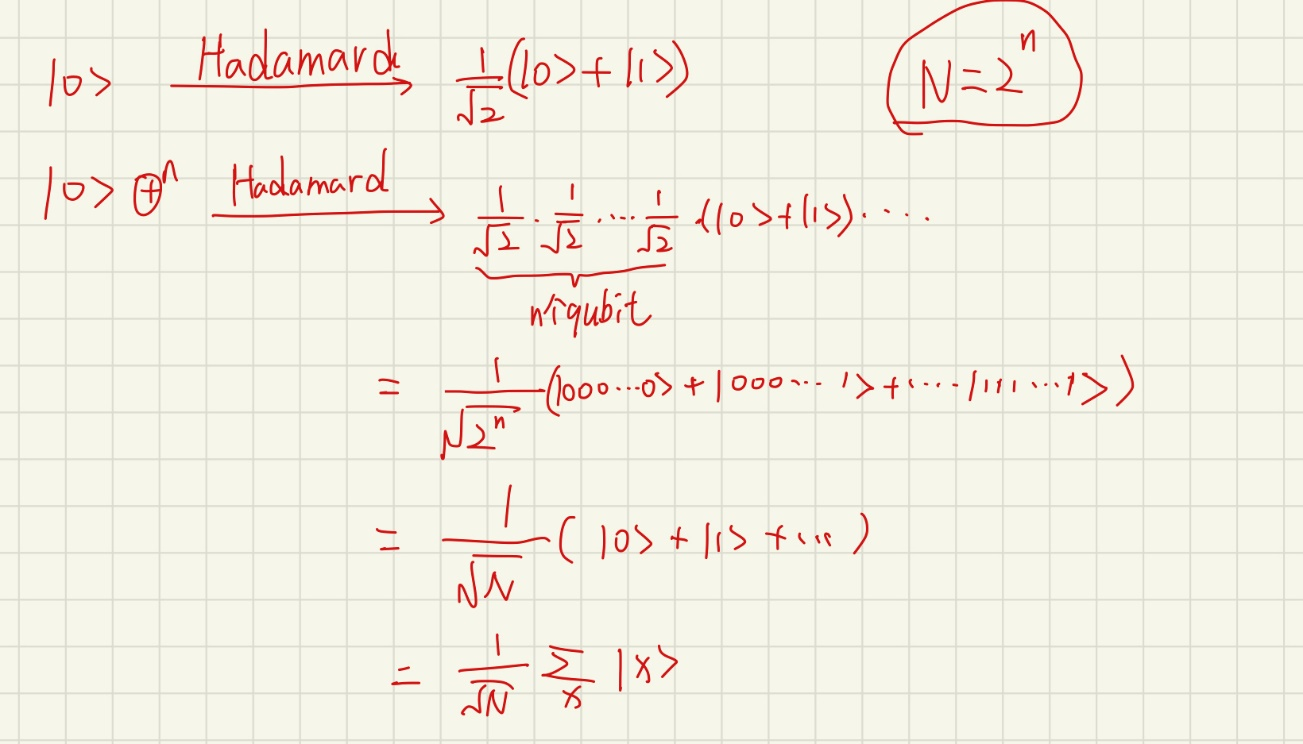 |0> Hadamard → 1/√2 (|0>+|1>) N=2^n
|0> ⊕^n Hadamard → 1/√2 · 1/√2 ···· 1/√2 ·(|0>+|1>)····
n个qubit
= 1/√2^n (|000···0> + |000··· 1> + ····|111···1>)
= 1/√N ( |0> + |1> + ··· )
= 1/√N Σ_x |x>